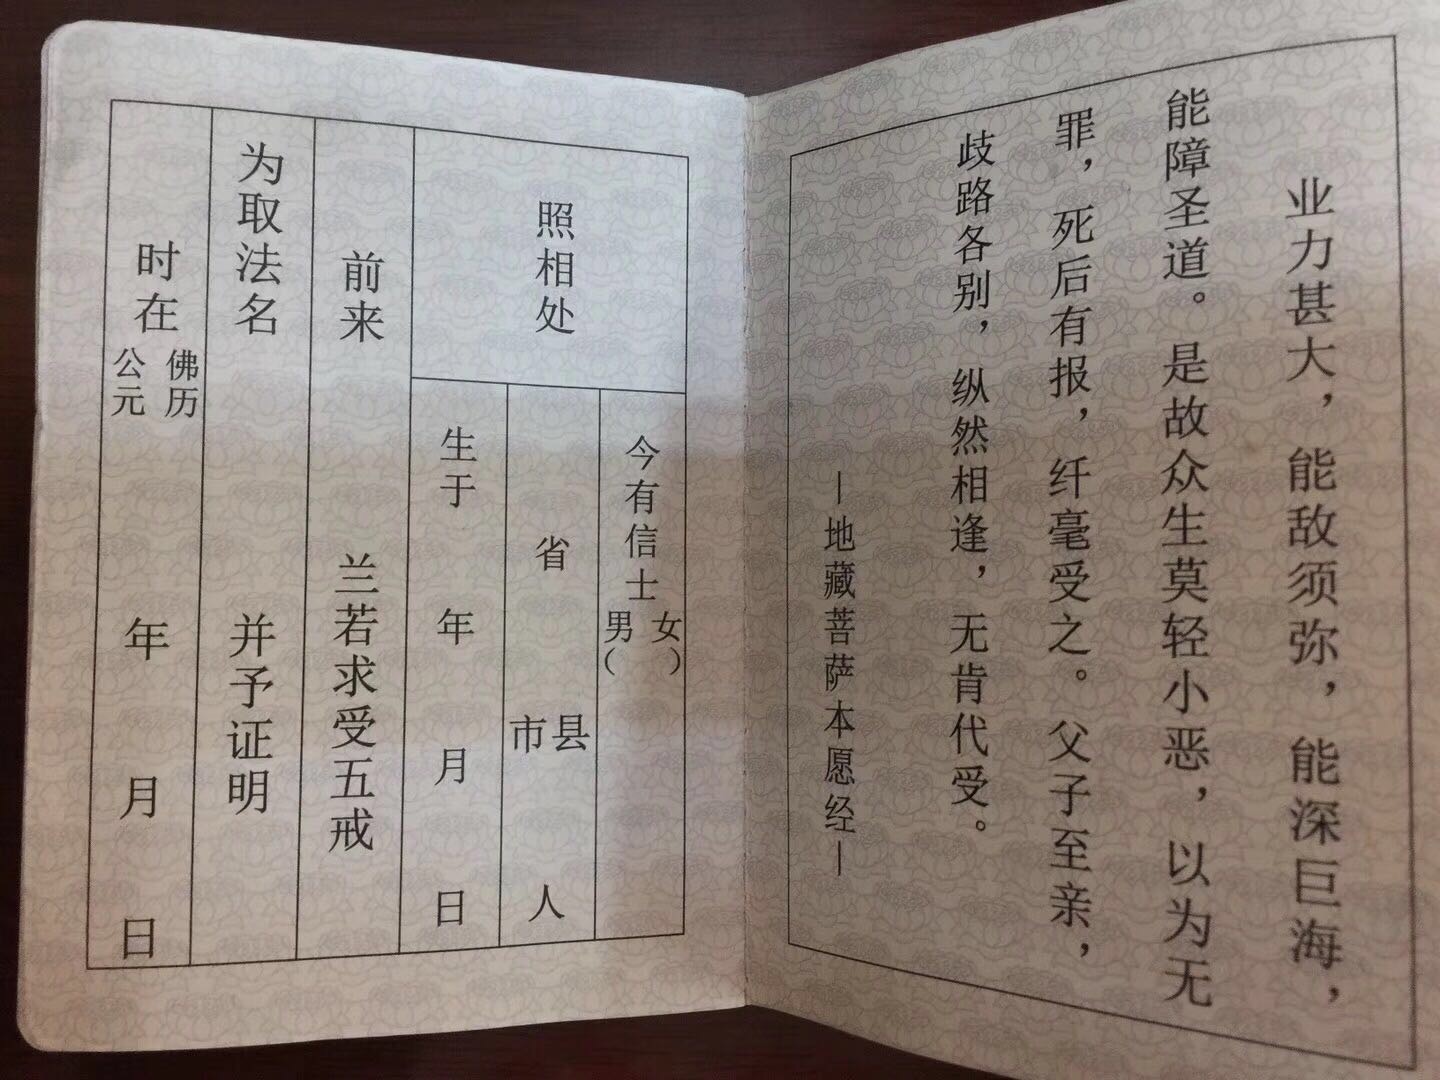 业力甚大，能敌须弥，能深巨海，
能障圣道。是故众生莫轻小恶，以为无
罪，死后有报，纤毫受之。父子至亲，
歧路各别，纵然相逢，无肯代受。
—地藏菩萨本愿经—
照相处
今有信士
男 女
（ ）
省
市县
人
生于
年
月
日
前来
兰若求受五戒
为取法名
并予证明
时在
佛历
公元
年
月
日